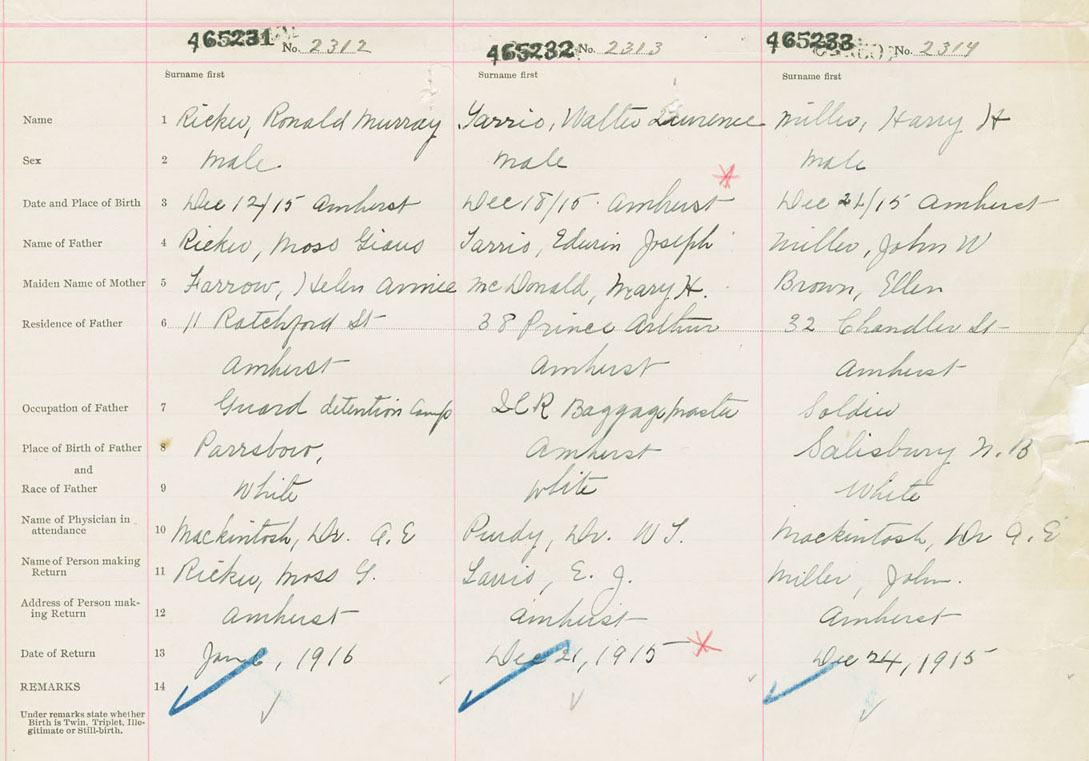 465231 No. 2312 465232 No. 2313 465233 No. 2314
Surname first Surname first Surname first
Name 1 Ricker, Ronald Murray Tarrio, Walter Lawrence Miller, Harry H
Sex 2 Male Male Male
Date and Place of Birth 3 Dec 12/15 Amherst Dec 18/15 Amherst Dec 24/15 Amherst
Name of Father 4 Ricker, Moss Tarrio, Edwin Joseph Miller, John W
Maiden Name of Mother 5 Farrow, Helen Annie McDonald, Mary H. Brown, Ellen
Residence of Father 6 11 Ratchford St 38 Prince Arthur 32 Chandler St
Amherst Amherst Amherst
Occupation of Father 7 Guard detention Camp ICR Baggagemaster Soldier
Place of Birth of Father 8 Parrsboro, Amherst Salisbury N.B
and
Race of Father 9 White White White
Name of Physician in
attendance 10 Mackintosh, Dr. A. E Purdy, Dr. W T. Mackintosh, Dr A. E
Name of Person making
Return 11 Ricker, Moss G. E. J. Miller, John.
Address of Person mak-
ing Return 12 Amherst Amherst Amherst
Date of Return 13 Jan 6, 1916 Dec 21, 1915 Dec 24, 1915
REMARKS 14
Under remarks state whether
Birth is Twin, Triplet, Ille-
gitimate or Still-birth.